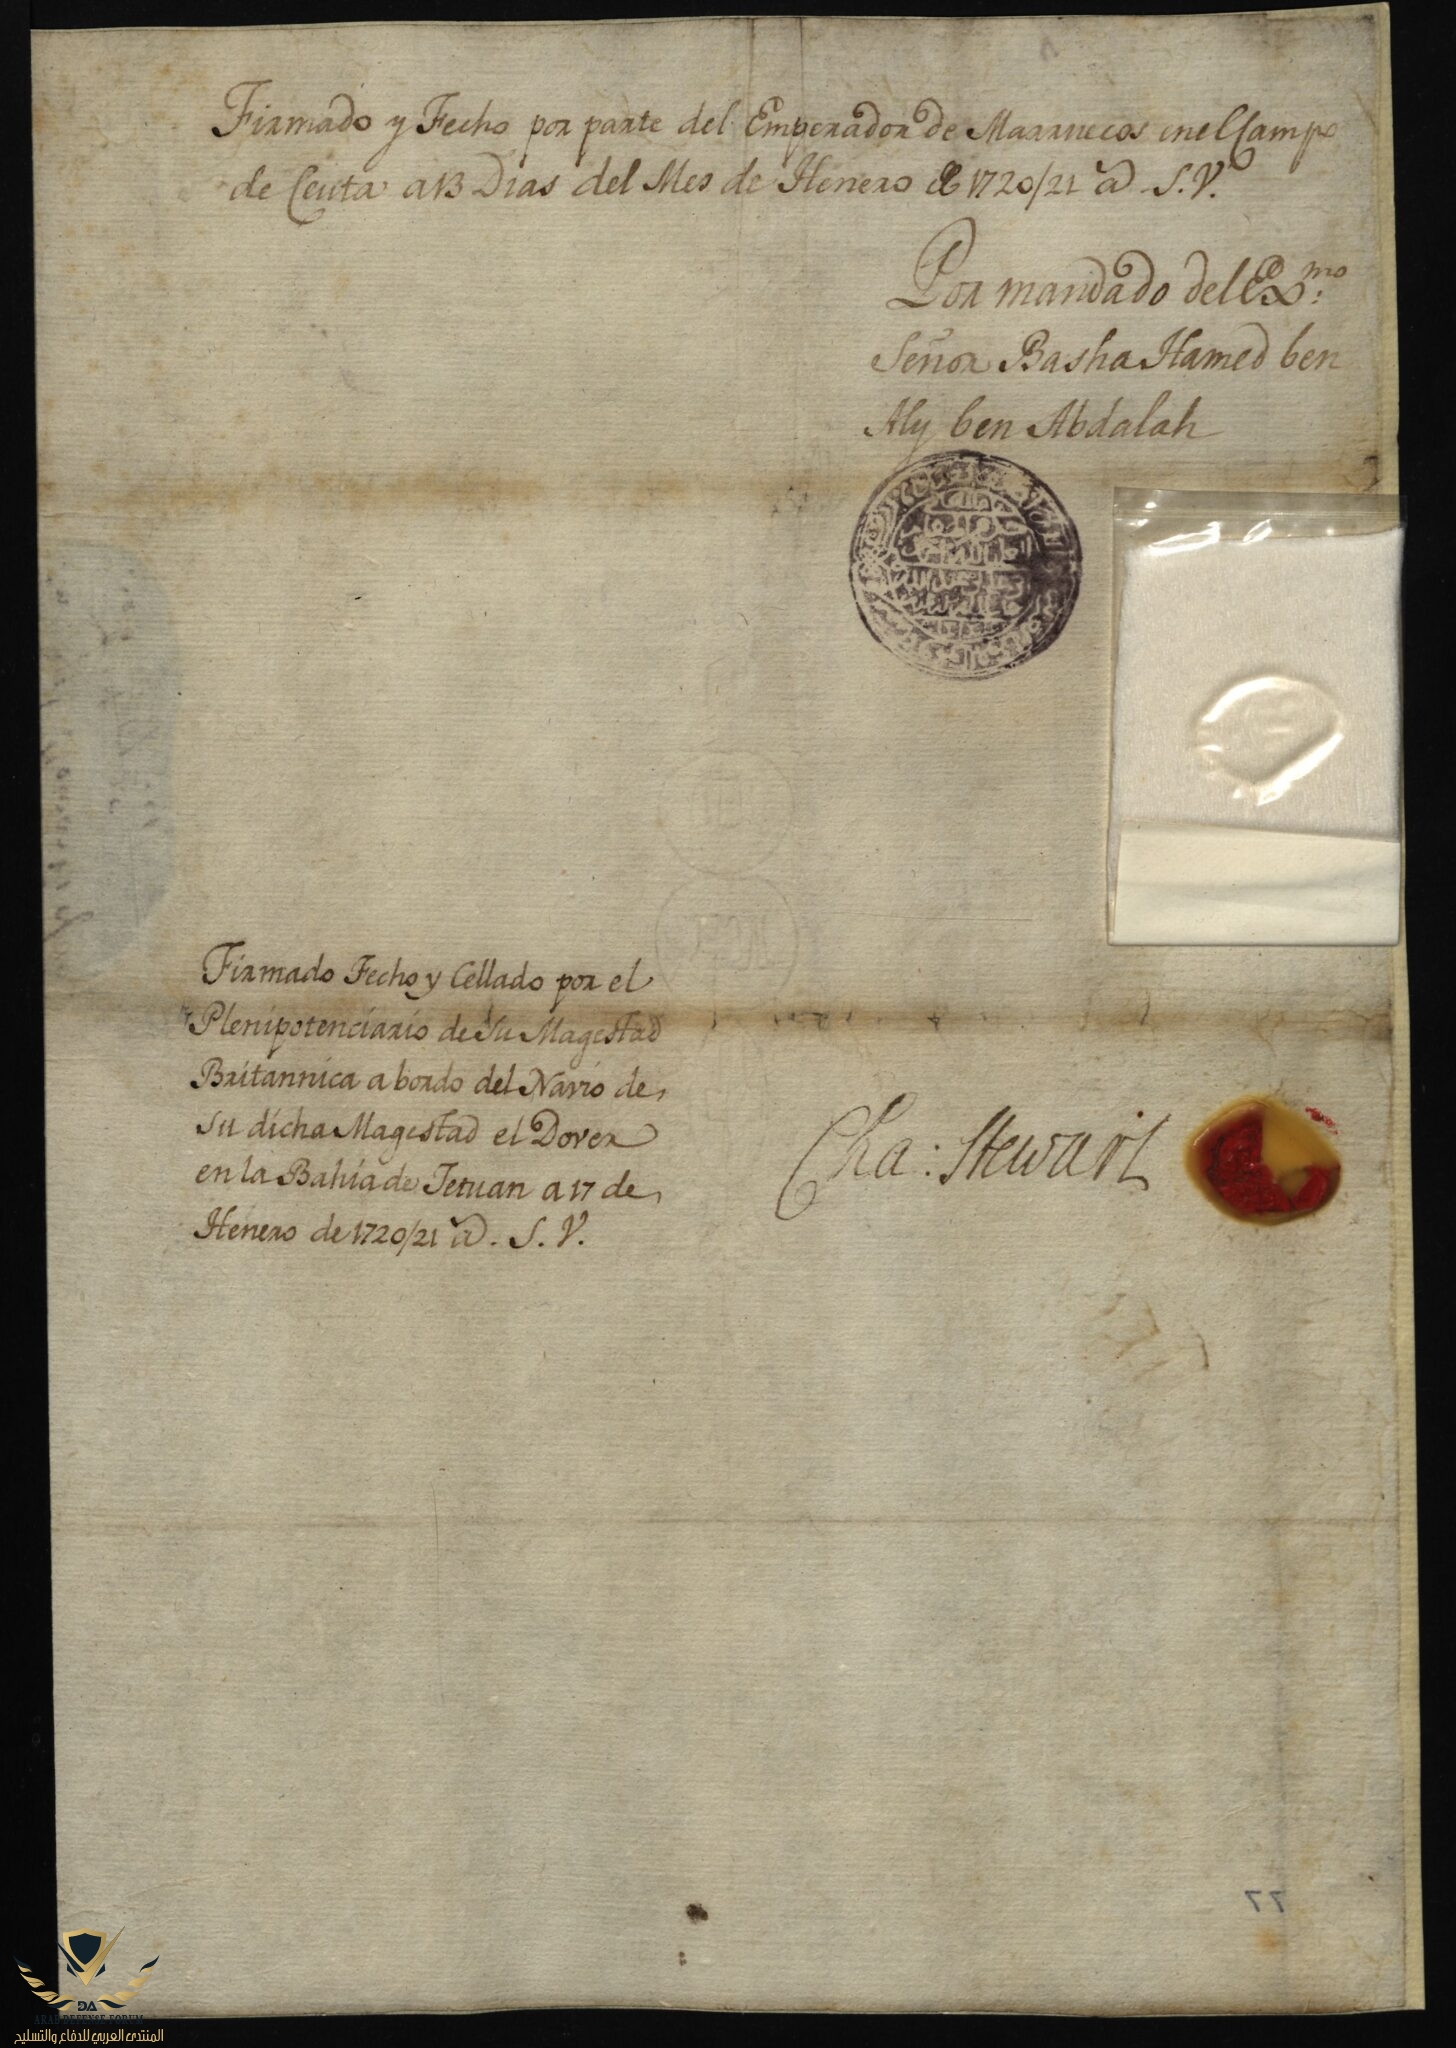 Firmado y Fecho por parte del Emperador de Marruecos en el Campo
de Ceuta a 13 Dias del Mes de Henero de 1720/21 a. S. V.
Por mandado del Ex.mo
Señor Basha Hamed ben
Aly ben Abdalah
Firmado Fecho y Cellado por el
Plenipotenciario de Su Magestad
Britannica a bordo del Navio de
Su dicha Magestad el Dover
en la Bahia de Tetuan a 17 de
Henero de 1720/21 a. S. V.
Cha: Stewart
77
DA
ARAB DEFENSE FORUM
المنتدى العربي للدفاع والتسليح